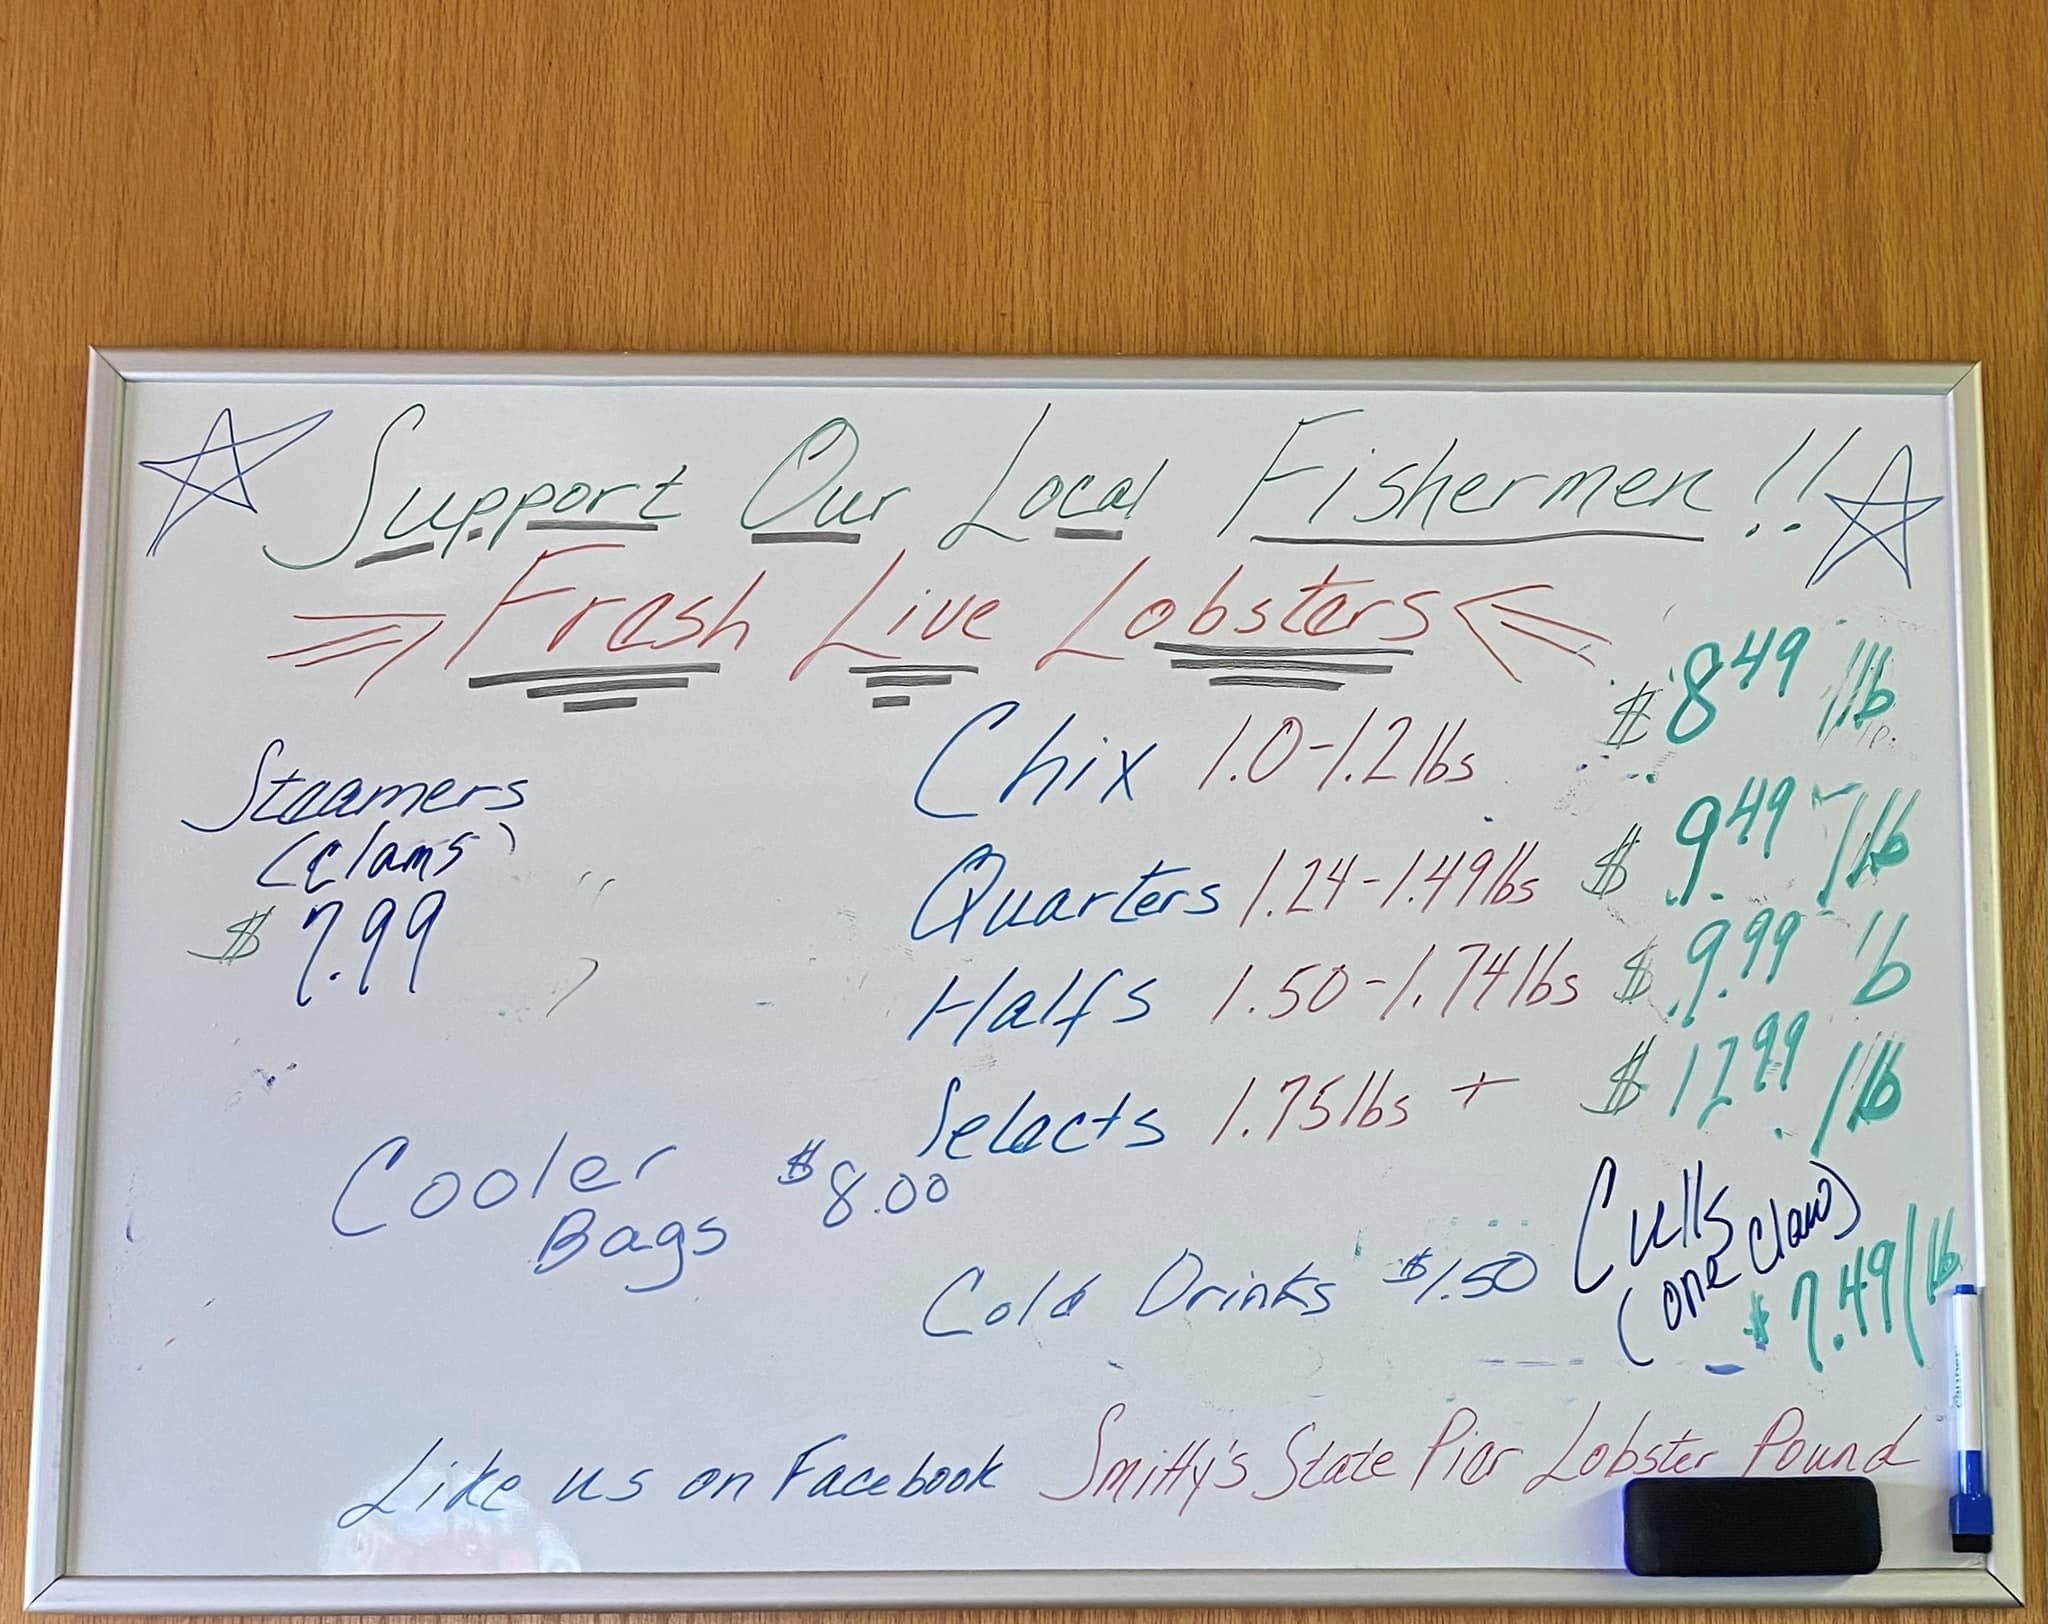 Support Our Local Fishermen!!
Fresh Live Lobsters
Chix 1.0-1.2 lbs $8.49 /lb
Steamers
(clams)
$7.99
Quarters 1.24-1.49 lbs $9.49 /lb
Halfs 1.50-1.74 lbs $9.99 lb
Selects 1.75 lbs + $12.99 /lb
Cooler
Bags $8.00
Culls
(one claw)
$7.49/lb
Cold Drinks $1.50
Like us on Facebook Smitty's State Pier Lobster Pound